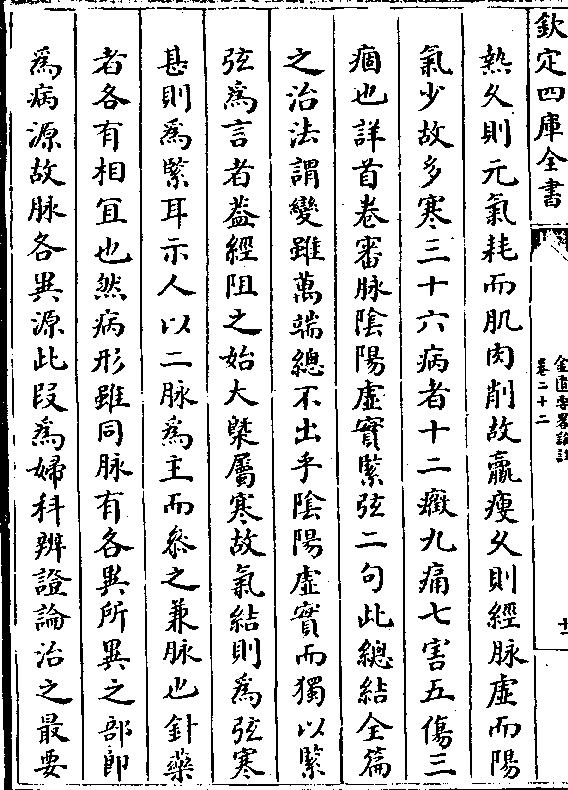 欽定四庫全書
金匱要略論註
卷二十二
十一
熱久則元氣耗而肌肉削故羸瘦久則經脉虛而陽
氣少故多寒三十六病者十二癥九痛七害五傷三
痼也詳首卷審脉陰陽虛實緊弦二句此總結全篇
之治法謂變雖萬端總不出乎陰陽虛實而獨以緊
弦為言者蓋經阻之始大槩屬寒故氣結則為弦寒
甚則為緊耳示人以二脉為主而叅之兼脉也針藥
者各有相宜也然病形雖同脉有各異所異之部即
為病源故脉各異源此段為婦科辨證論治之最要